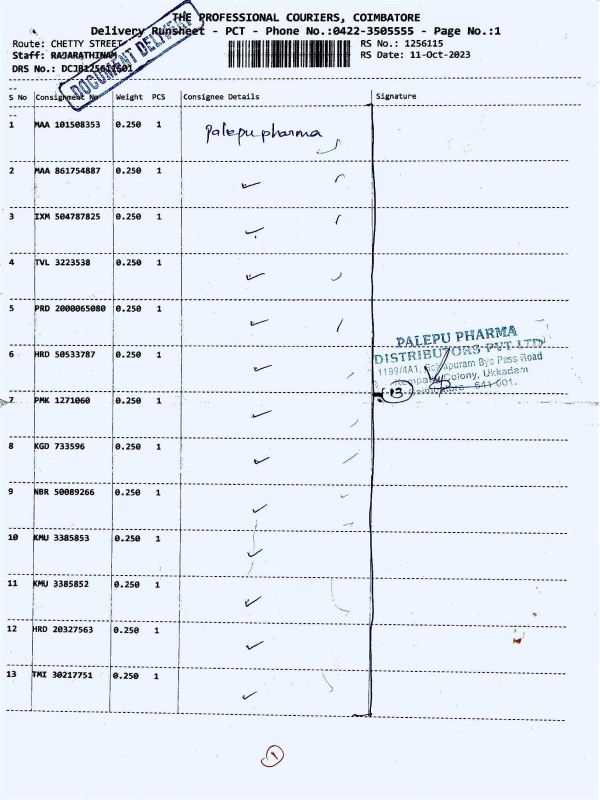 THE PROFESSIONAL COURIERS, COIMBATORE
Delivery Runsheet - PCT - Phone No.:0422-3505555 - Page No.:1
Route: CHETTY STREET RS No.: 1256115
Staff: RAJARATHINAM RS Date: 11-Oct-2023
DRS No.:
DOCUMENT DELIVERY
S No Consignment No Weight PCS Consignee Details Signature
1 MAA 101508353 0.250 1 Palepu pharma
2 MAA 861754887 0.250 1
3 IXM 504787825 0.250 1
4 TVL 3223538 0.250 1
5 PRD 2000065080 0.250 1
PALEPU PHARMA
DISTRIBUTORS PVT. LTD
6 HRD 50533787 0.250 1
1199/4A1, Bye Pass Road
Colony, Ukkadam
Coimbatore - 641 001.
13
7 PMK 1271060 0.250 1
8 KGD 733596 0.250 1
9 NBR 50089266 0.250 1
10 KMU 3385853 0.250 1
11 KMU 3385852 0.250 1
12 HRD 20327563 0.250 1
13 TMI 30217751 0.250 1
1